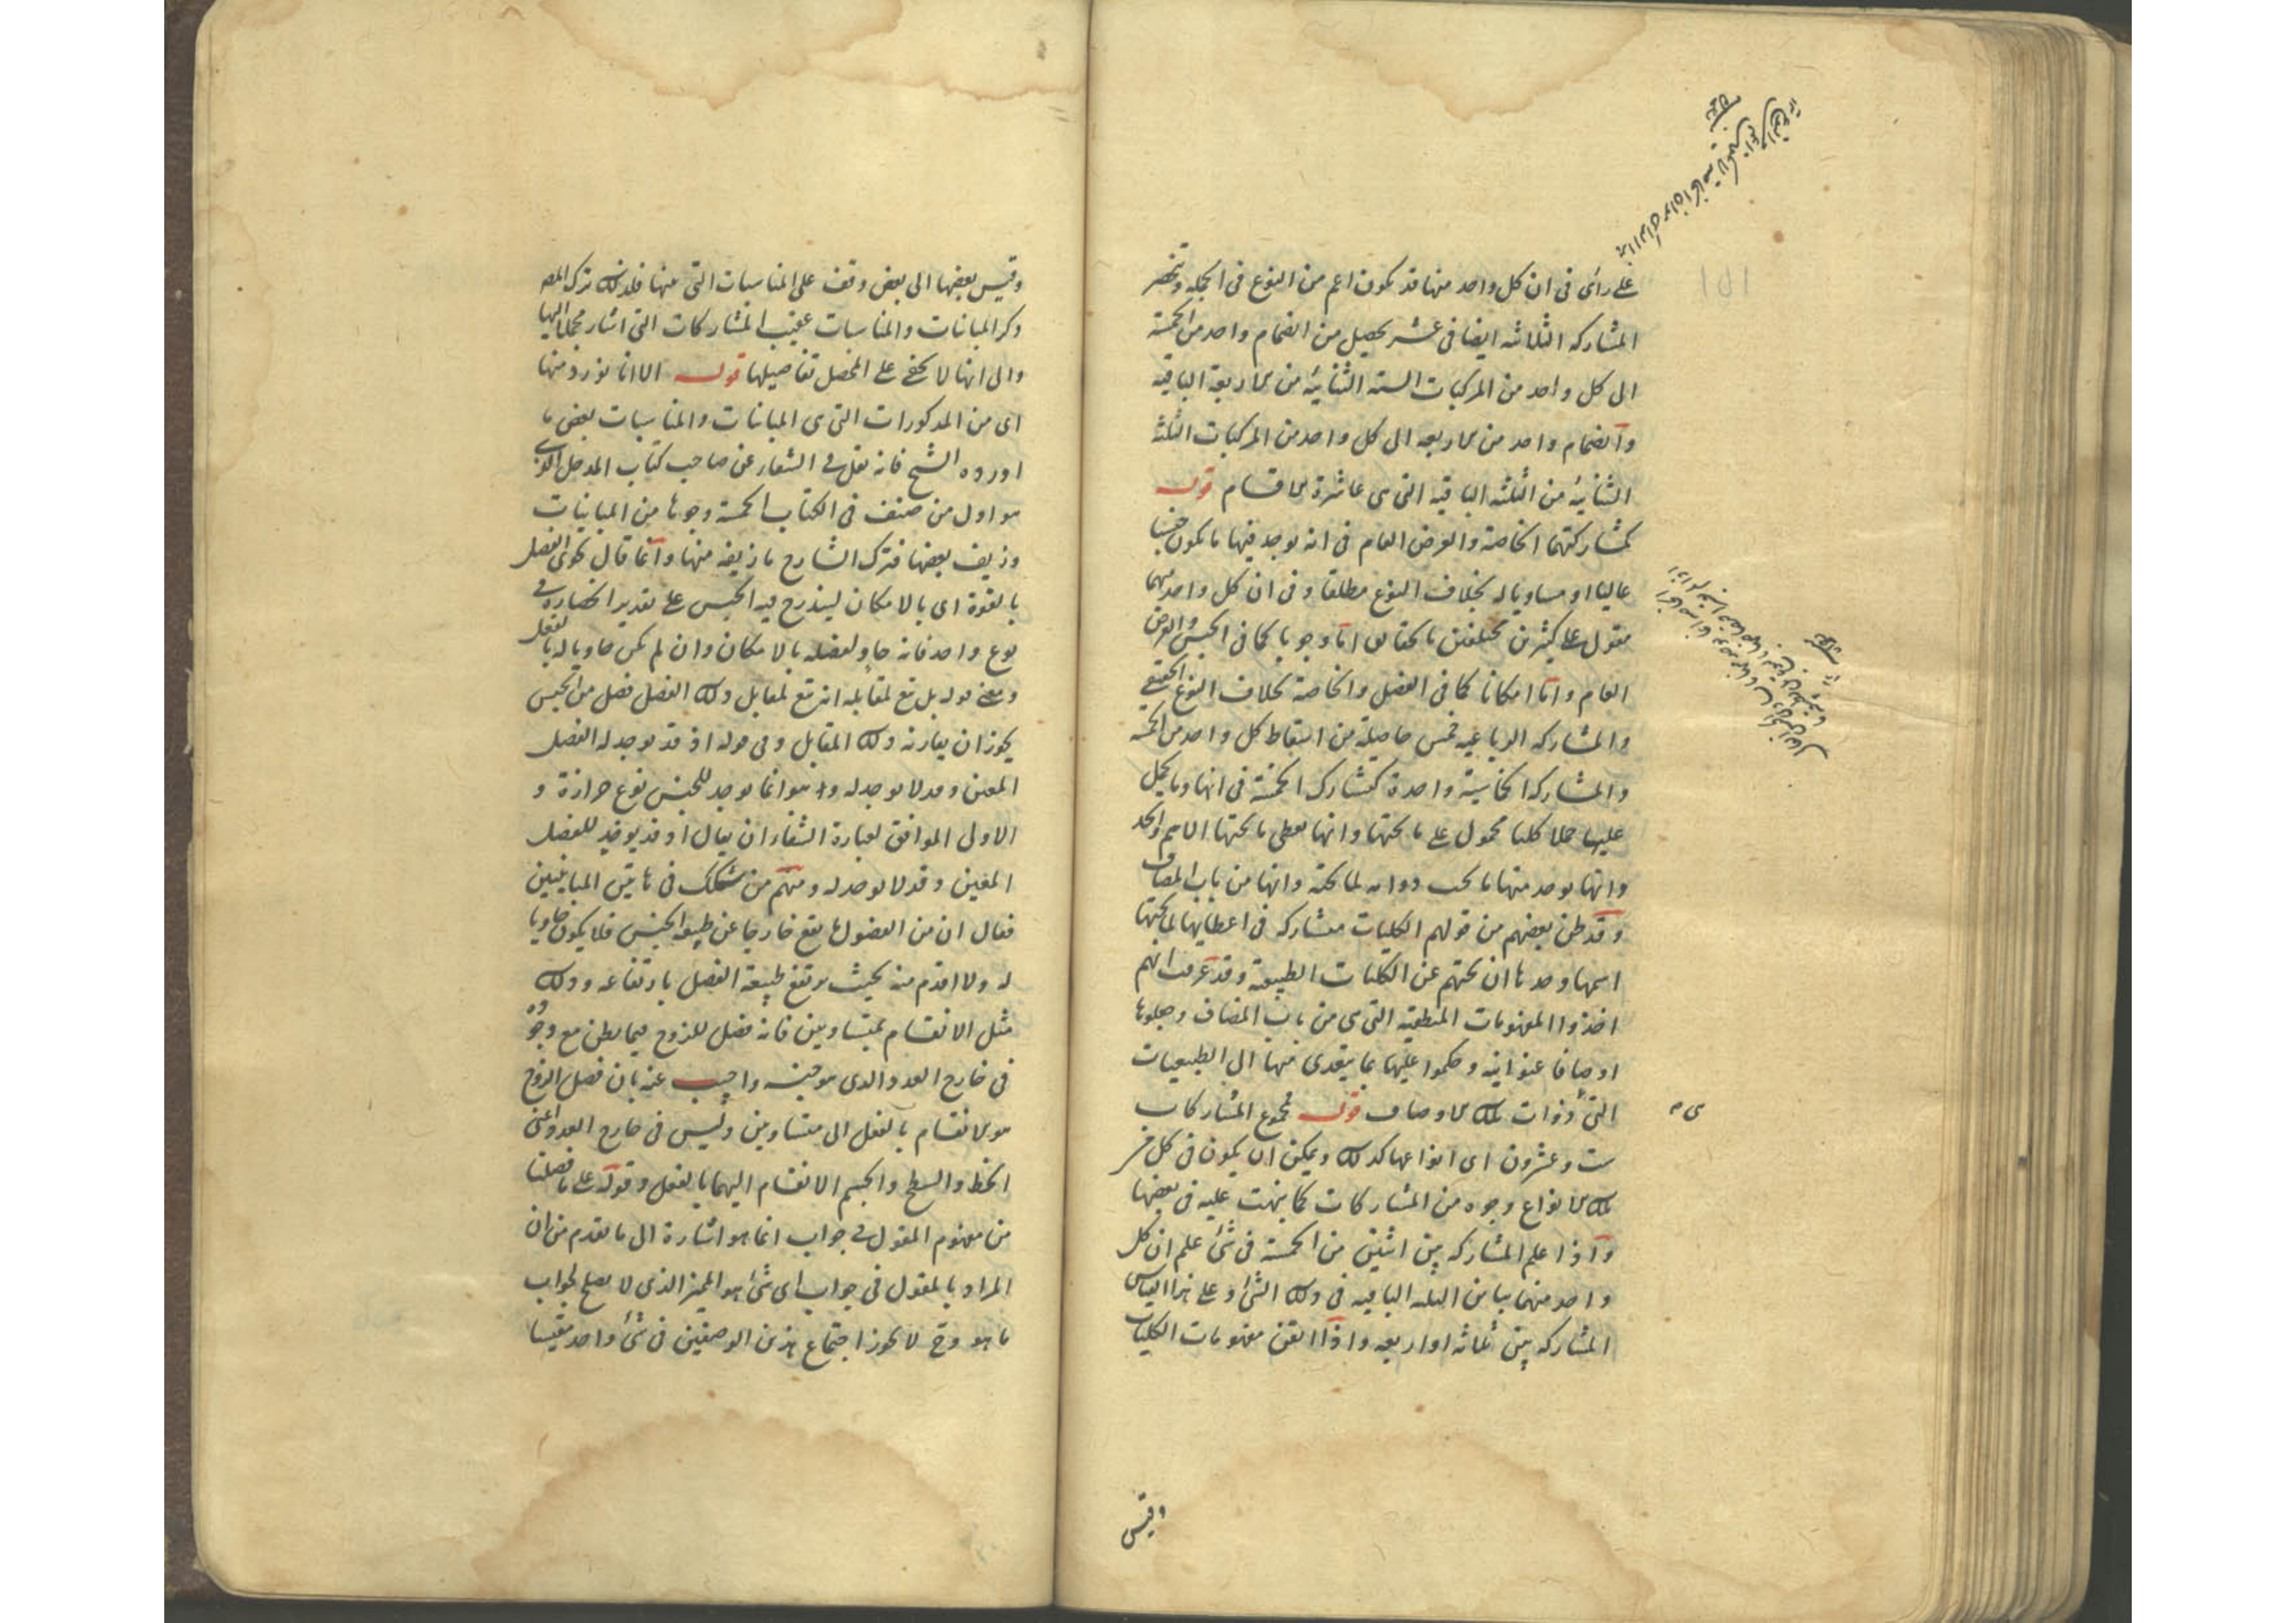 على رأى فى ان كل واحد منها قد يكون اعم من النوع فى الجملة وتنحصر
المشاركة الثلاثية ايضا فى عشر يحصل من انضمام واحد من الخمسة
الى كل واحد من المركبات الستة الثنائية من الاربعة الباقية
وانضمام واحد من الاربعة الى كل واحد من المركبات الثلثة
الثنائية من الثلثة الباقية التى هى عاشرة الاقسام قوله
كمشاركتهما الخاصة والعرض العام فى انه يوجد فيها ما يكون جنسا
عاليا او مساويا له بخلاف النوع مطلقا وفى ان كل واحد منهما
مقول على كثيرين مختلفين بالحقايق اما وجوبا كما فى الجنس والعرض
العام واما امكانا كما فى الفصل والخاصة بخلاف النوع الحقيقى
والمشاركة الرباعية خمس حاصلة من اسقاط كل واحد من الخمسة
والمشاركة الخماسية واحدة كتشارك الخمسة فى انها وما يحمل
عليها حملا كليا محمول على ما تحتها وانها يعطى ما تحتها الاسم والحد
وانها يوجد منها ما يجب دوامه لما تحته وانها من باب المضاف
وقد ظن بعضهم من قولهم الكليات متشاركة فى اعطائها لما تحتها
اسمها وحدها ان بحثهم عن الكليات الطبيعية وقد عرفت انهم
اخذوا المفهومات المنطقية التى هى من باب المضاف وجعلوها
اوصافا عنوانية وحكموا عليها بما يتعدى منها الى الطبيعيات
التى ذوات تلك الاوصاف قوله مجموع المشاركات
ست وعشرون اى انواعها كذلك ويمكن ان يكون فى كل من
تلك الانواع وجوه من المشاركات كما نبهت عليه فى بعضها
واذا علم المشاركة بين اثنين من الخمسة فى شئ علم ان كل
واحد منهما يباين الثلثة الباقية فى ذلك الشئ وعلى هذا القياس
المشاركة بين ثلاثة او اربعة واذا اتقن مفهومات الكليات
وقيس
وقيس بعضها الى بعض وقف على المناسبات التى منها فلذلك ترك المص
ذكر المباينات والمناسبات عقيب المشاركات التى اشار مجملا اليها
والى انها لا يخفى على المحصل تفاصيلها قوله الا انا نورد منها
اى من المذكورات التى هى المباينات والمناسبات بعض ما
اورده الشيخ فانه نقل فى الشفا عن صاحب كتاب المدخل الذى
هو اول من صنف فى الكتاب الخمسة وجوها من المباينات
وزيف بعضها فترك الشارح ما زيفه منها وانما قال يحوى الفصل
بالقوة اى بالامكان ليندرج فيه الجنس على تقدير انحصاره فى
نوع واحد فانه حاو لفصله بالامكان وان لم يكن حاويا له بالفعل
ومعنى قوله بل مع لمقابله انه مع لمقابل ذلك الفصل فصل من الجنس
يجوز ان يقارنه ذلك المقابل وفى قوله اذ قد يوجد له الفصل
المعين وقد لا يوجد له وانما يوجد للجنس نوع حزازة و
الاولى الموافق لعبارة الشفاء ان يقال اذ قد يوجد للفصل
المعين وقد لا يوجد له ومنهم من شكك فى هاتين المباينتين
فقال ان من الفصول ما يقع خارجا عن طبيعة الجنس فلا يكون حاويا
له ولا اقدم منه بحيث يرتفع طبيعة الفصل بارتفاعه وذلك
مثل الانقسام بمتساويين فانه فصل للزوج فيما يظن مع وجوده
فى خارج العدد الذى هو جنسه واجيب عنه بان فصل الزوج
هو الانقسام بالفعل الى متساويين وليس فى خارج العدد اعنى
الخط والسطح والجسم الانقسام اليهما بالفعل وقوله على ما فصلنا
من مفهوم المقول فى جواب انما هو اشارة الى ما تقدم من ان
المراد بالمقول فى جواب اى شئ هو المميز الذى لا يصلح لجواب
ما هو وح لا يجوز اجتماع هذين الوصفين فى شئ واحد مقيسا